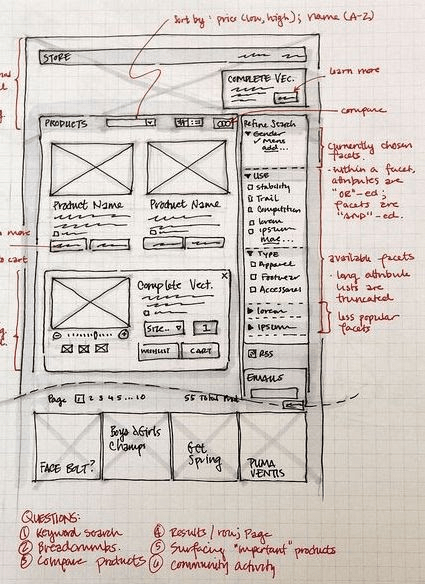 Sort by: price (low, high); name (A-Z)
STORE
COMPLETE VEC.
learn more
compare
PRODUCTS
Refine Search
Gender
✓ Mens
add...
currently chosen
facets.
- within a facet,
attributes are
"OR"-ed;
facets are
"AND"-ed.
USE
stability
Trail
Competition
lorem
ipsum
more...
Product Name
Product Name
more
to cart
TYPE
Apparel
Footwear
Accessories
available facets
- long attribute
lists are
truncated
Complete Vect.
X
SIZE..
1
WISHLIST
CART
lorem
ipsum
less popular
facets
RSS
EMAILS
Page 1 2 3 4 5 ... 10
55 Total Prod
FACE BOLT?
Boys & Girls
Champs
Get
Spring
PUMA
VENTIS
QUESTIONS:
① Keyword search
② Breadcrumbs.
③ Compare products
④ Results / row; Page
⑤ Surfacing "important" products
⑥ Community activity